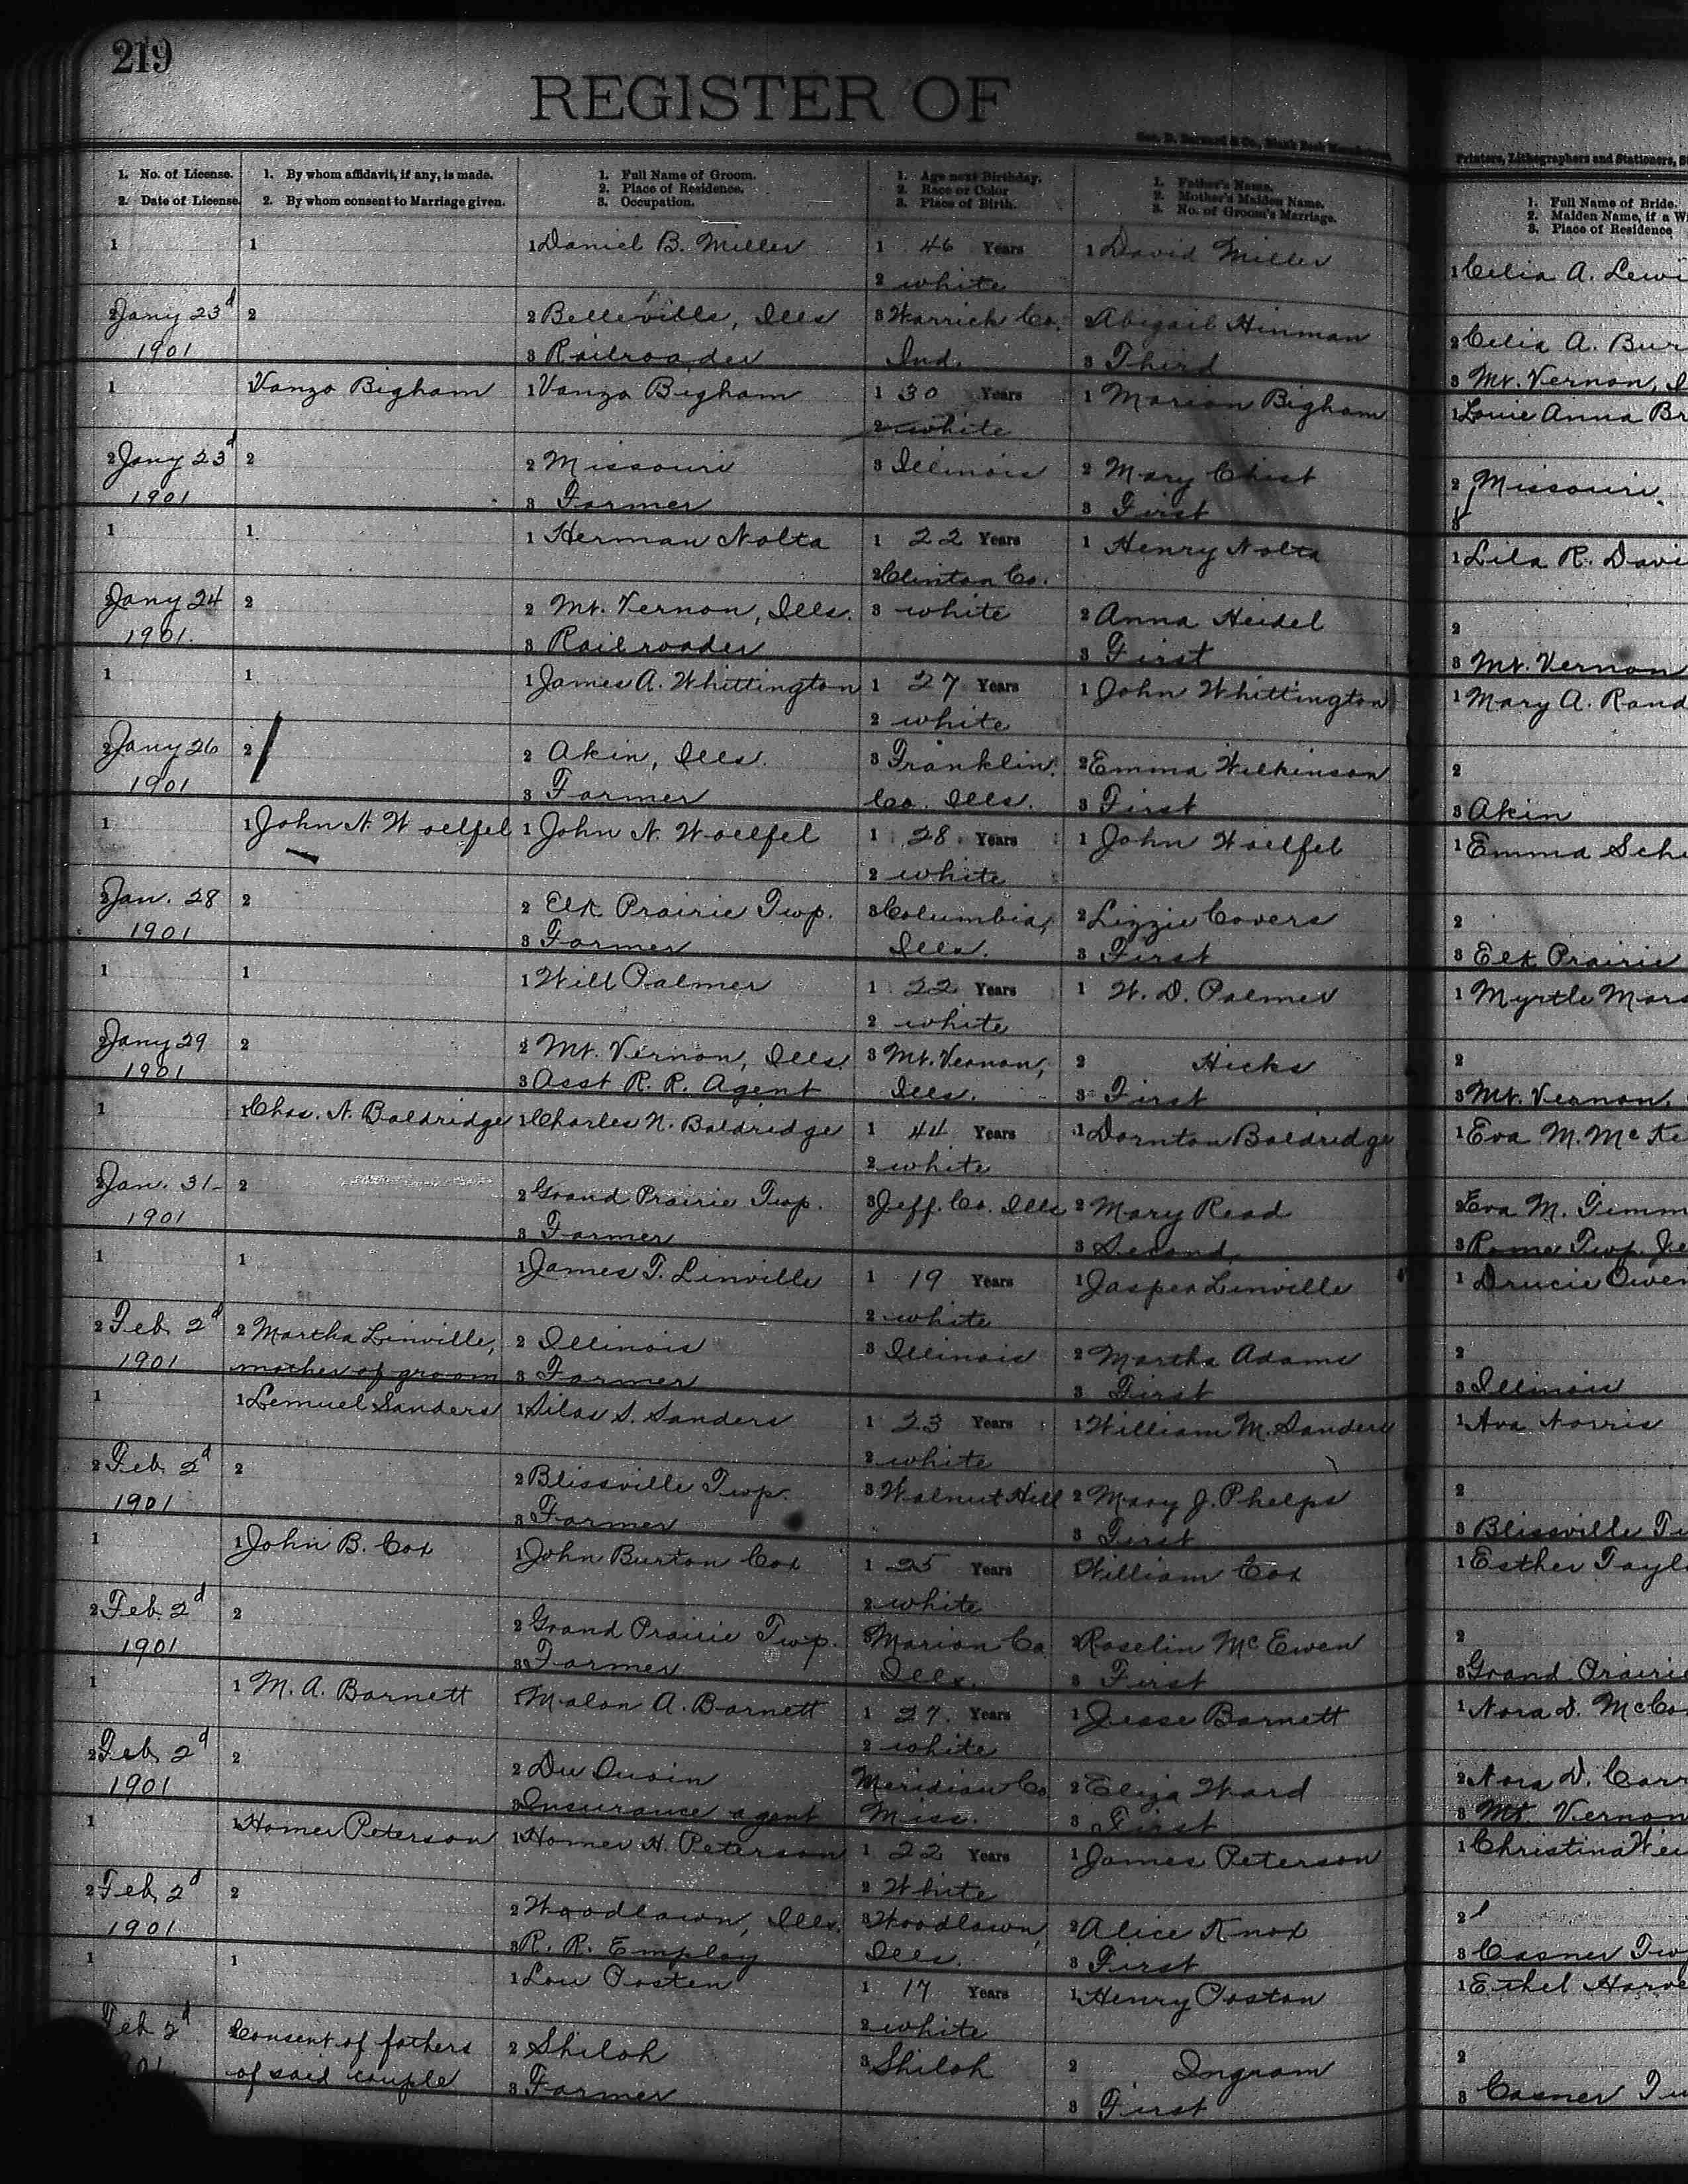 219
REGISTER OF
Geo. D. Barnard & Co., Blank Book
Printers, Lithographers and Stationers,
1. No. of License.
2. Date of License.
1. By whom affidavit, if any, is made.
2. By whom consent to Marriage given.
1. Full Name of Groom.
2. Place of Residence.
3. Occupation.
1. Age next Birthday.
2. Race or Color
3. Place of Birth.
1. Father's Name.
2. Mother's Maiden Name.
3. No. of Groom's Marriage.
1. Full Name of Bride.
2. Maiden Name, if a Wi
3. Place of Residence
1
2 Jany 23d
1901
1
2
1 Daniel B. Miller
2 Belleville, Ills
3 Railroader
1 46 Years
2 white
3 Warrick Co.
Ind.
1 David Miller
2 Abigail Hinman
3 Third
1 Celia A. Lewi
2 Celia A. Bur
3 Mt. Vernon, I
1
2 Jany 23d
1901
1 Vanzo Bigham
2
1 Vanzo Bigham
2 Missouri
3 Farmer
1 30 Years
2 white
3 Illinois
1 Marion Bigham
2 Mary Chist
3 First
1 Louie Anna Br
2 Missouri
3
1
2 Jany 24
1901.
1
2
1 Herman Nolta
2 Mt. Vernon, Ills.
3 Railroader
1 22 Years
2 Clinton Co.
3 white
1 Henry Nolta
2 Anna Heidel
3 First
1 Lila R. Davi
2
3 Mt. Vernon
1
2 Jany 26
1901
1
2
1 James A. Whittington
2 Akin, Ills.
3 Farmer
1 27 Years
2 white
3 Franklin
Co. Ills.
1 John Whittington
2 Emma Wilkinson
3 First
1 Mary A. Rand
2
3 Akin
1
2 Jan. 28
1901
1 John N. Woelfel
2
1 John N. Woelfel
2 Elk Prairie Twp.
3 Farmer
1 28 Years
2 white
3 Columbia,
Ills.
1 John Woelfel
2 Lizzie Covers
3 First
1 Emma Sch
2
3 Elk Prairie
1
2 Jany 29
1901
1
2
1 Will Palmer
2 Mt. Vernon, Ills.
3 Asst R. R. Agent
1 22 Years
2 white
3 Mt. Vernon,
Ills.
1 W. D. Palmer
2 Hicks
3 First
1 Myrtle Mars
2
3 Mt. Vernon,
1
2 Jan. 31-
1901
1 Chas. N. Baldridge
2
1 Charles N. Baldridge
2 Grand Prairie Twp.
3 Farmer
1 44 Years
2 white
3 Jeff. Co. Ills
1 Dornton Baldridge
2 Mary Read
3 Second
1 Eva M. McKe
2 Eva M. Timm
3 Rome Twp. Je
1
2 Feb 2d
1901
1
2 Martha Linville,
mother of groom
1 James T. Linville
2 Illinois
3 Farmer
1 19 Years
2 white
3 Illinois
1 Jasper Linville
2 Martha Adams
3 First
1 Drucie Owen
2
3 Illinois
1
2 Feb. 2d
1901
1 Lemuel Sanders
2
1 Silas S. Sanders
2 Blissville Twp.
3 Farmer
1 23 Years
2 white
3 Walnut Hill
1 William M. Sanders
2 Mary J. Phelps
3 First
1 Ava Norris
2
3 Blissville T
1
2 Feb. 2d
1901
1 John B. Cox
2
1 John Burton Cox
2 Grand Prairie Twp.
3 Farmer
1 25 Years
2 white
3 Marion Co
Ills.
1 William Cox
2 Roselin McEwen
3 First
1 Esther Tayl
2
3 Grand Prairie
1
2 Feb 2d
1901
1 M. A. Barnett
2
1 Malon A. Barnett
2 Du Quoin
3 Insurance agent
1 27 Years
2 white
Meridian Co
Miss.
1 Jesse Barnett
2 Eliza Ward
3 First
1 Nora D. McCo
2 Nora D. Carr
3 Mt. Vernon
1
2 Feb 2d
1901
1 Homer Peterson
2
1 Homer H. Peterson
2 Woodlawn, Ills.
3 R. R. Employ
1 22 Years
2 White
3 Woodlawn,
Ills.
1 James Peterson
2 Alice Knox
3 First
1 Christina Wei
2
3 Casner Tw
1
Feb 2d
1
2 Consent of fathers
of said couple
1 Lou Posten
2 Shiloh
3 Farmer
1 17 Years
2 white
3 Shiloh
1 Henry Poston
2 Ingram
3 First
1 Ethel Harve
2
3 Casner Tw